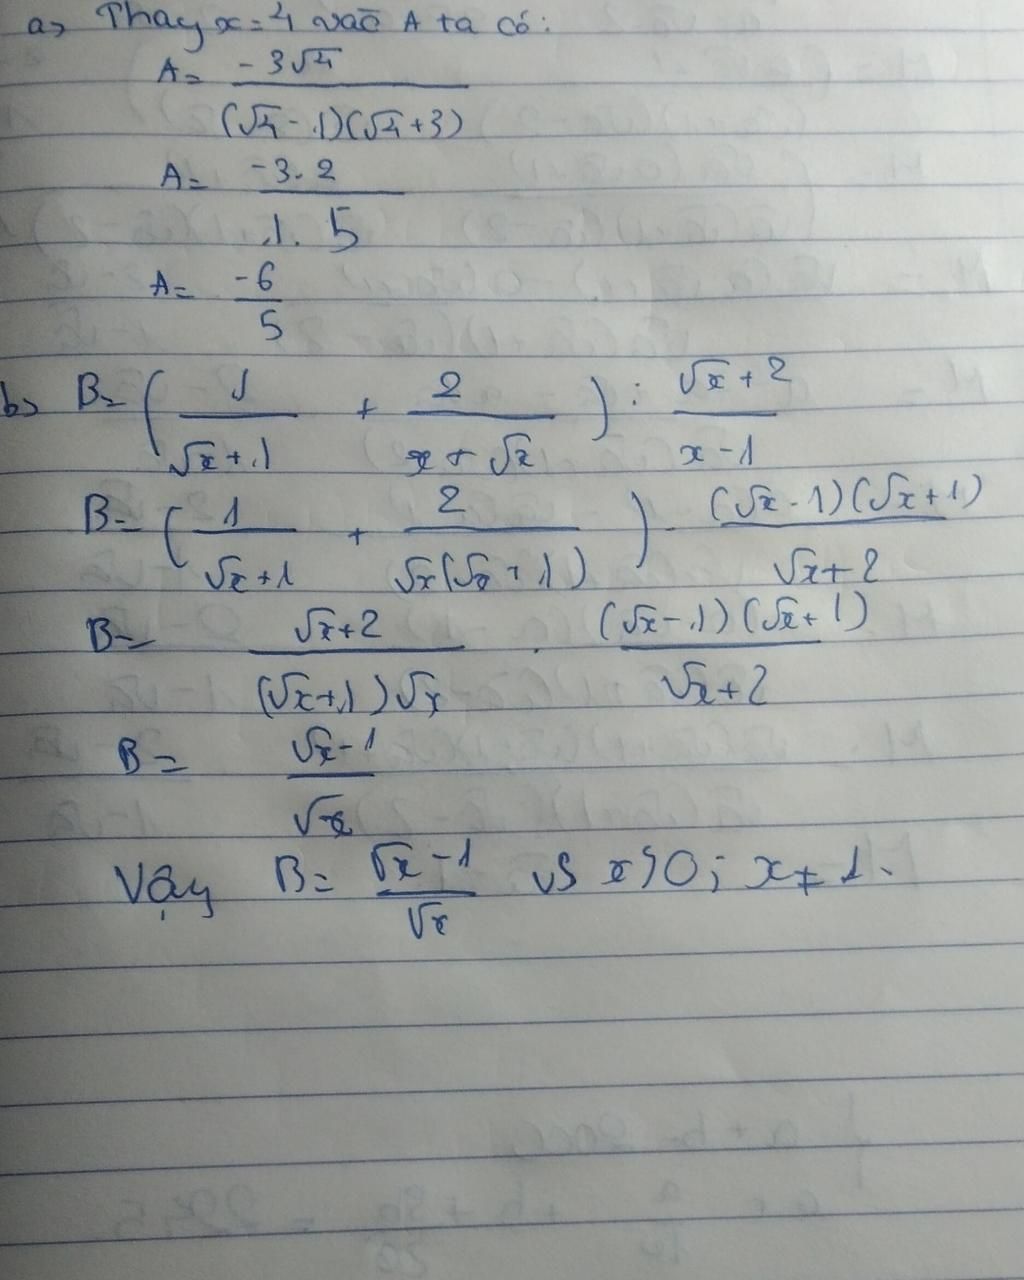 a, Thay x = 4 vào A ta có:
A = -3√4 / (√4 - 1)(√4 + 3)
A = -3.2 / 1.5
A = -6 / 5
b, B = (1 / √x + 1 + 2 / x + √x) : √x + 2 / x - 1
B = (1 / √x + 1 + 2 / √x(√x + 1)) . (√x - 1)(√x + 1) / √x + 2
B = √x + 2 / (√x + 1)√x . (√x - 1)(√x + 1) / √x + 2
B = √x - 1 / √x
Vậy B = √x - 1 / √x vs x > 0; x ≠ 1.